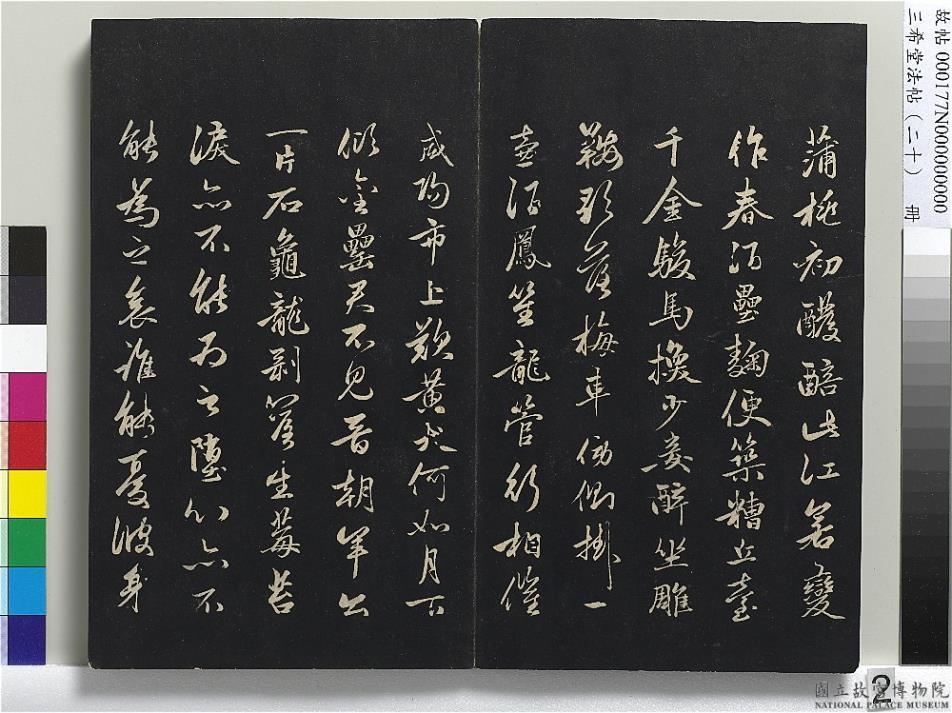 故帖 000177N000000000
三希堂法帖（二十） 冊
蒲桃初醱醅此江若變
作春酒壘麴便築糟丘臺
千金駿馬換少妾醉坐雕
鞍歌落梅車傍側掛一
壺酒鳳笙龍管行相催
咸陽市上歎黃犬何如月下
傾金罍君不見晉朝羊公
一片石龜龍剝落生莓苔
淚亦不能為之墮心亦不
能為之哀誰能憂彼身
2
國立故宮博物院
NATIONAL PALACE MUSEUM